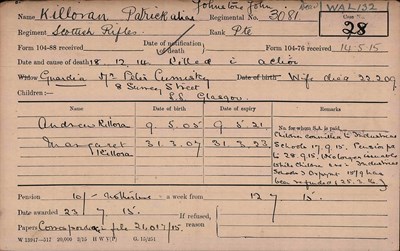 Johnstone John
Name Killoran Patrick alias Regimental No. 3081 WAL 132
Regiment Scottish Rifles Rank Pte Case No. 28
Form 104-88 received Date of notification of death Form 104-76 received 14.5.15
Date and cause of death 18.12.14 Killed in action
Guardian Mr Peter 8 Surrey Street Date of birth Wife died 22.2.09
S.S. Glasgow
Names of children Date of birth Date of expiry
Andrew Killoran 9.5.05 9.5.21
Margaret Killoran 31.3.07 31.3.23
No. for whom S.A. is paid
Children committed to Industrial
Schools 17.9.15. Pension pd
to 28.9.15. No longer issuable
while children are in Industrial
Schools
been refunded
Pension 10/- a week from 12 7 15
Date awarded 23 7 15. If refused, reason
Papers file 21,017/15.
W 13947—317 20,000 2/15 H W V(P) G. 16/251